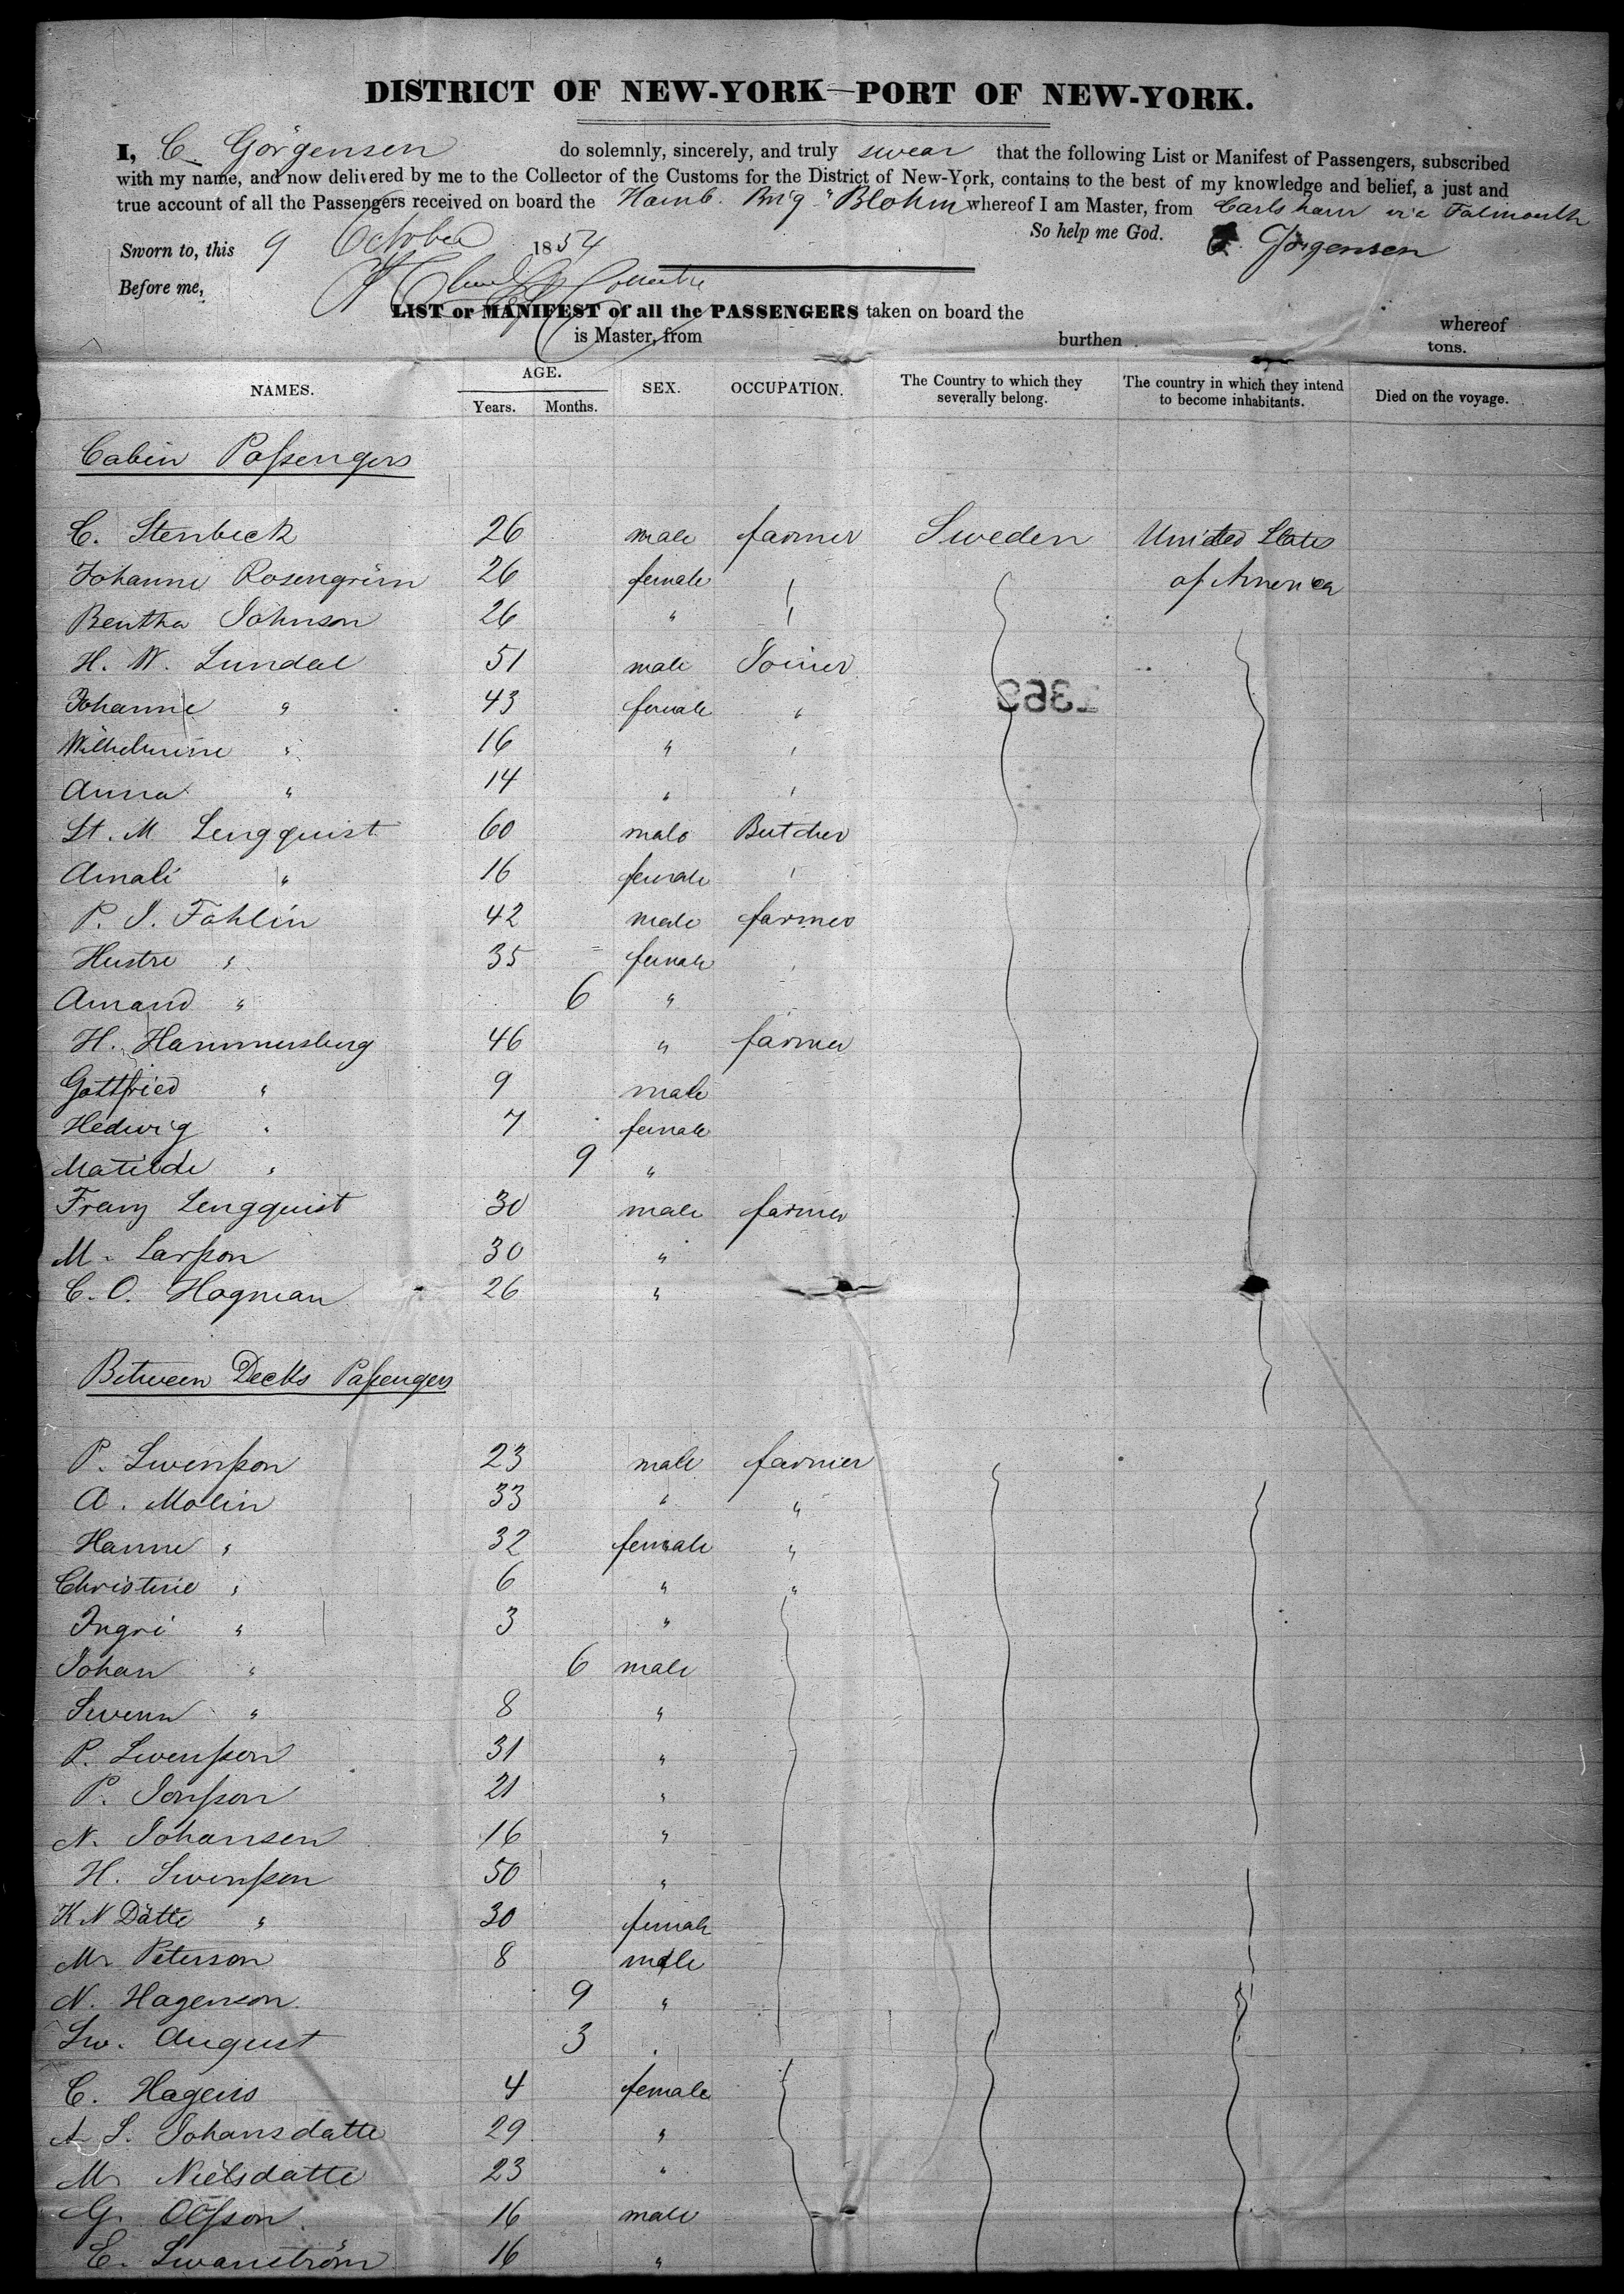 DISTRICT OF NEW-YORK—PORT OF NEW-YORK.
I, C. Görgensen do solemnly, sincerely, and truly swear that the following List or Manifest of Passengers, subscribed
with my name, and now delivered by me to the Collector of the Customs for the District of New-York, contains to the best of my knowledge and belief, a just and
true account of all the Passengers received on board the Hamb. Brig "Blohm whereof I am Master, from Carlsham via Falmouth
So help me God.
Sworn to, this 9 October 1854 Jörgensen
Before me,
LIST or MANIFEST of all the PASSENGERS taken on board the whereof
is Master, from burthen tons.
NAMES. AGE. Years. Months. SEX. OCCUPATION. The Country to which they severally belong. The country in which they intend to become inhabitants. Died on the voyage.
Cabin Passengers
C. Stenbeck 26 male farmer Sweden Unidted States
Johanne Rosengrün 26 female " of America
Bentha Johnson 26 " "
H. W. Lundal 51 male Joiner
1363
Johanne " 43 female "
Wilhelmine " 16 " "
Anna " 14 " "
St. M Lengquist 60 male Butcher
Amali " 16 female "
P. J. Fahlin 42 male farmer
Hustre " 35 female "
Amand " 6 "
H. Hammersberg 46 " farmer
Gottfried " 9 male
Hedwig " 7 female
Matilde " 9 "
Franz Lengquist 30 male farmer
M. Larsson 30 "
C. O. Hogman 26 "
Between Decks Passengers
P. Swensson 23 male farmer
A. Molin 33 " "
Hanne " 32 female "
Christine " 6 " "
Ingri " 3 "
Johan " 6 male
Swenn " 8 "
P. Swensson 31 "
P. Jonsson 21 "
N. Johansen 16 "
H. Swensson 50 "
K N Datte " 30 female
M. Peterson 8 male
N. Hagenson 9 "
Sw. August 3 "
C. Hageis 4 female
A S. Johansdatte 29 "
M. Nielsdatte 23 "
G. Olsson 16 male
E. Swanström 16 "